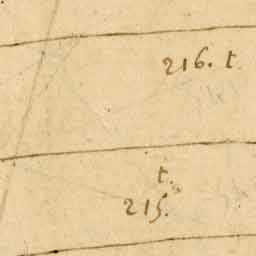 216. t
t.
215.